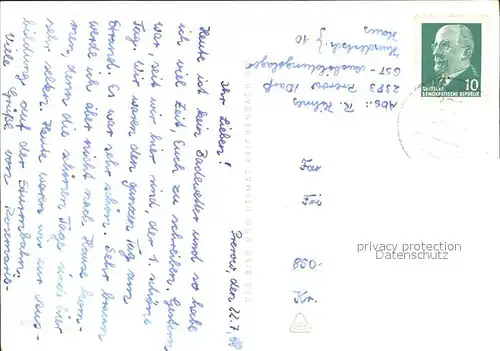 Prerow, den 22.7.68
Ihr Lieben!
Heute ist kein Badewetter und so habe
ich viel Zeit, Euch zu schreiben. Gestern
war, seit wir hier sind, der 1. schöne
Tag. Wir waren den ganzen Tag am
Strand. Es war sehr schön. Sehr braun
werde ich aber nicht nach Hause kom-
men, denn die schönen Tage sind hier
sehr selten. Heute waren wir zur Aus-
bildung auf der Sturmbahn.
Viele Grüße von Rosemarie
Abs.: R.
2383 Prerow /Darß
GST - Ausbildungslager
10
Haus
EIN BILD
10
DEUTSCHE
DEMOKRATISCHE REPUBLIK
Fam
Fri
-058
Kr.
privacy protection
Datenschutz